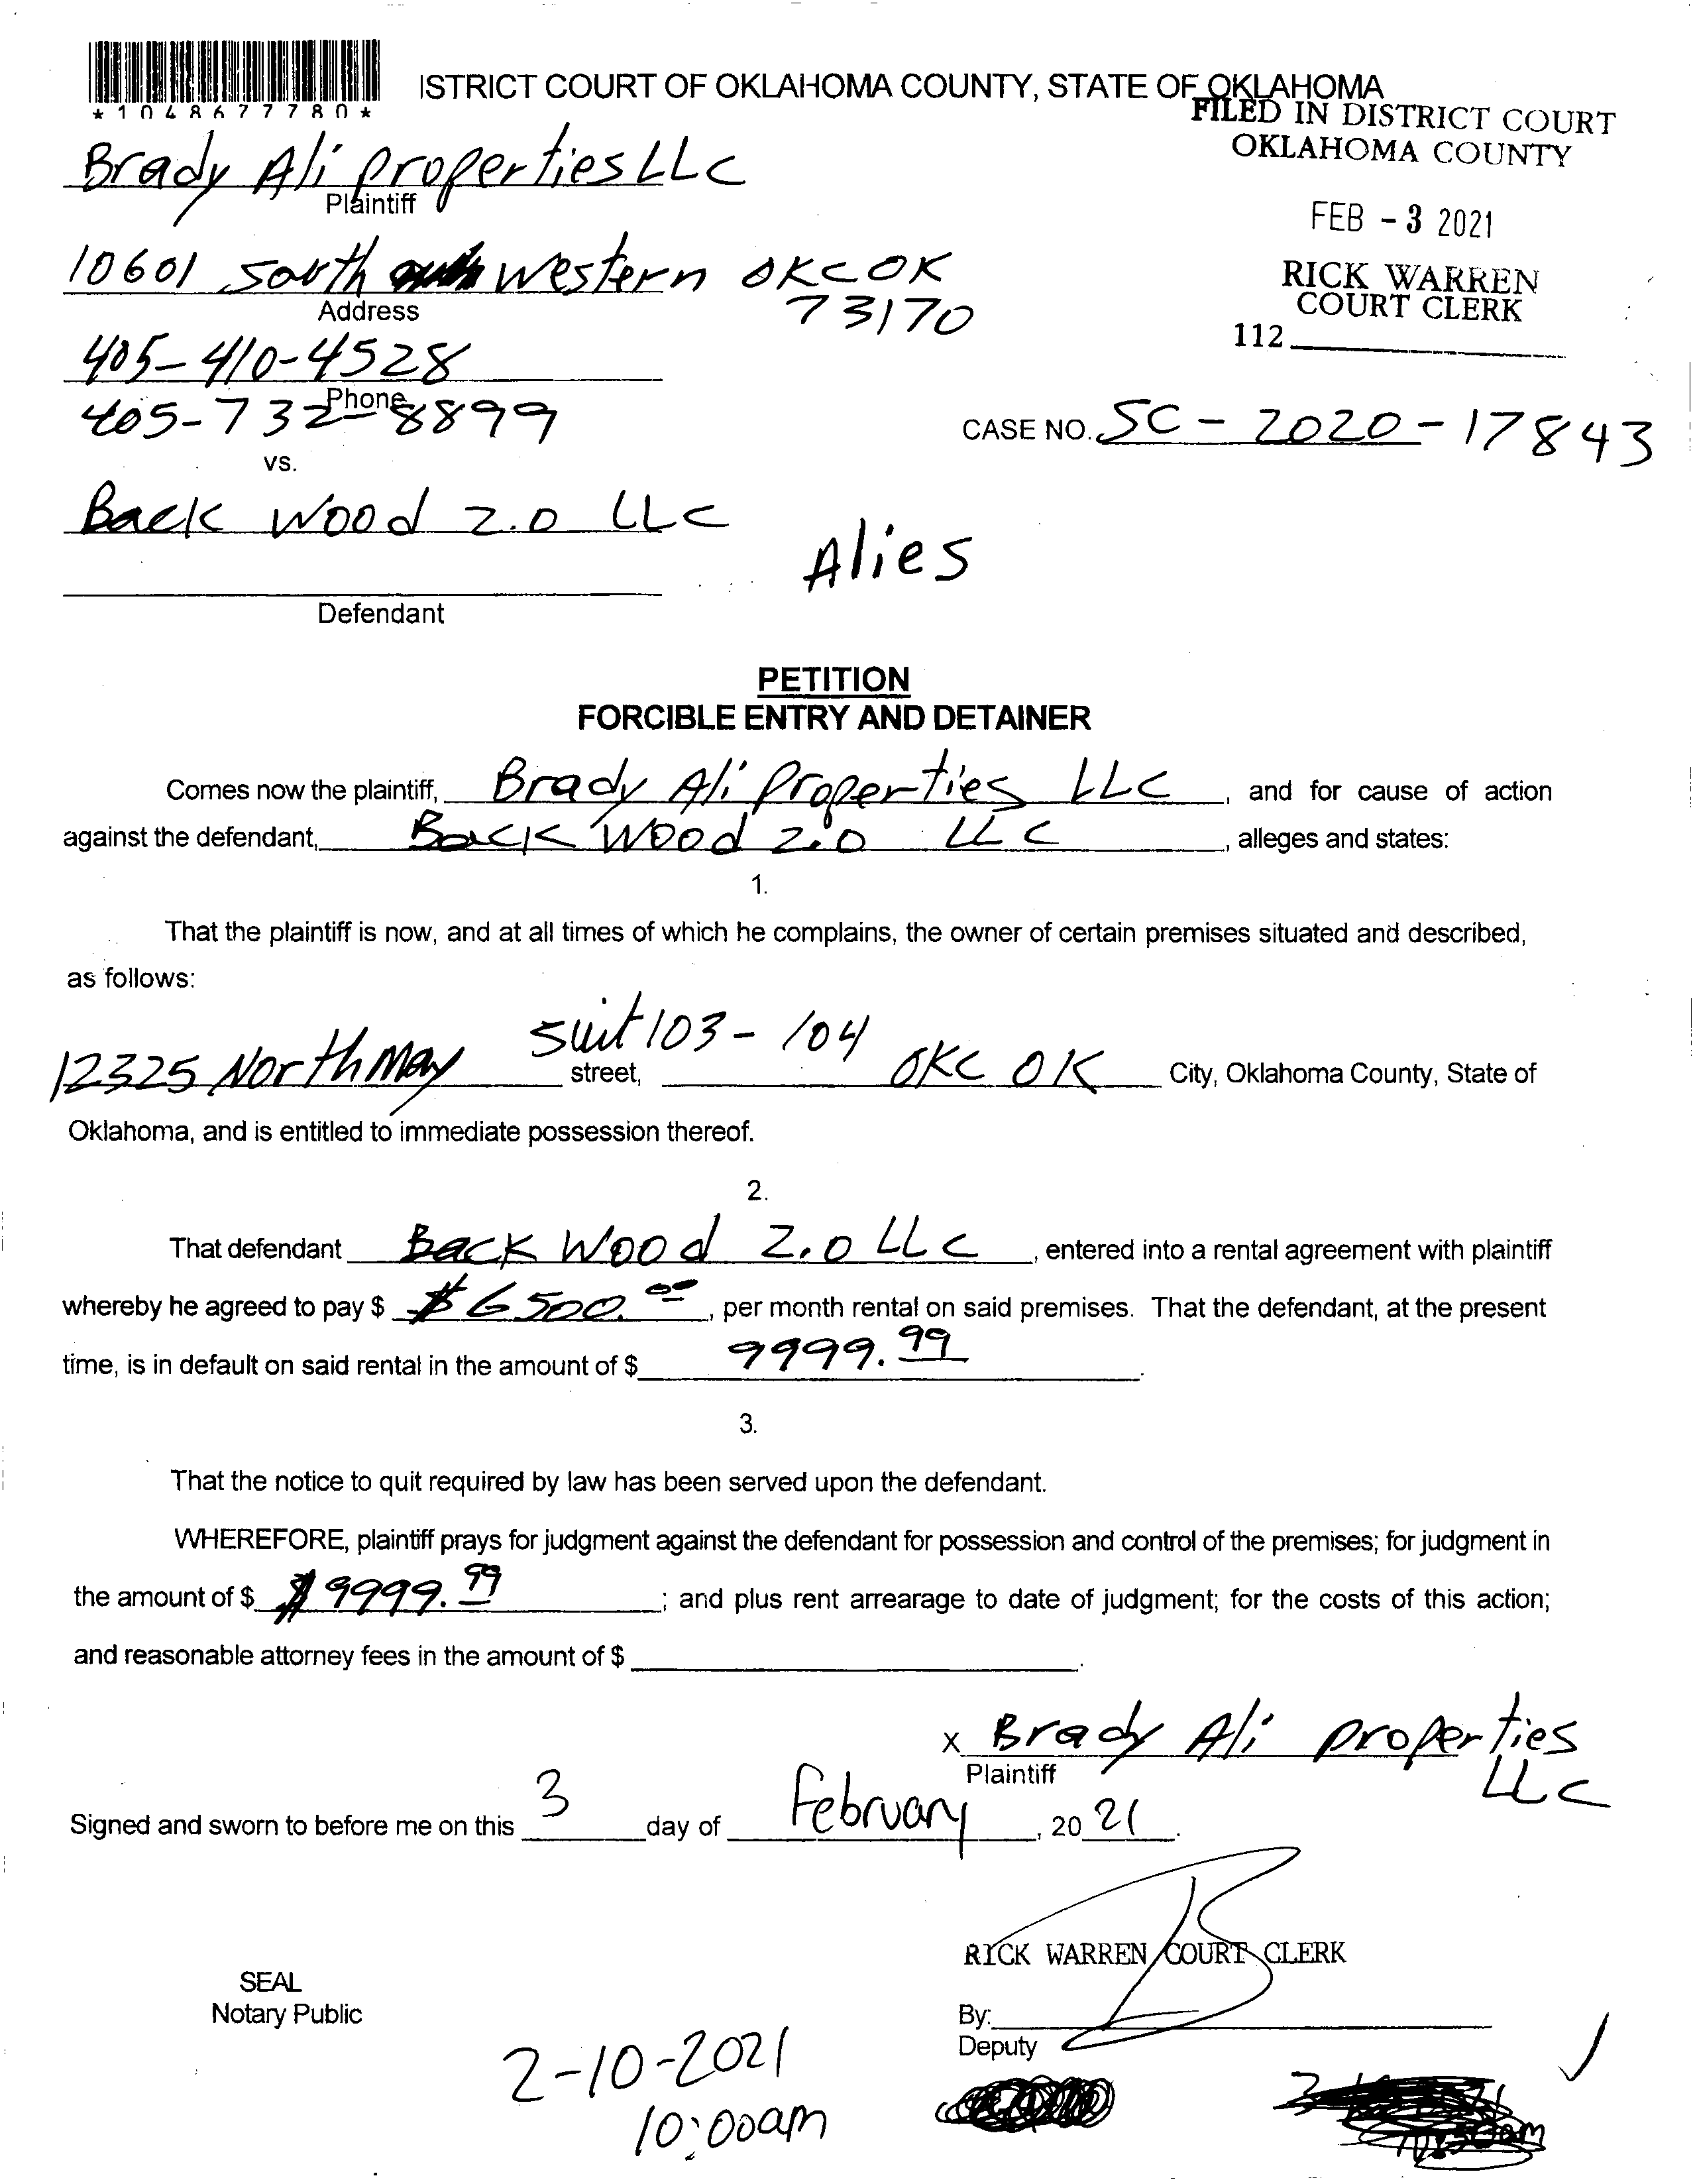 ISTRICT COURT OF OKLAHOMA COUNTY, STATE OF OKLAHOMA
*1048677780*
FILED IN DISTRICT COURT
OKLAHOMA COUNTY
FEB - 3 2021
RICK WARREN
COURT CLERK
112
Brady Ali properties LLC
Plaintiff
10601 South Western OKC OK
73170
Address
405-410-4528
Phone
405-732-8899
CASE NO. SC - 2020 - 17843
vs.
Back Wood 2.0 LLC
Alies
Defendant
PETITION
FORCIBLE ENTRY AND DETAINER
Comes now the plaintiff, Brady Ali Properties LLC, and for cause of action
against the defendant, Back Wood 2.0 LLC, alleges and states:
1.
That the plaintiff is now, and at all times of which he complains, the owner of certain premises situated and described,
as follows:
12325 North May suit 103 - 104 street, OKC OK City, Oklahoma County, State of
Oklahoma, and is entitled to immediate possession thereof.
2.
That defendant Back Wood 2.0 LLC, entered into a rental agreement with plaintiff
whereby he agreed to pay $ $6500.00, per month rental on said premises. That the defendant, at the present
time, is in default on said rental in the amount of $ 9999.99.
3.
That the notice to quit required by law has been served upon the defendant.
WHEREFORE, plaintiff prays for judgment against the defendant for possession and control of the premises; for judgment in
the amount of $ $9999.99; and plus rent arrearage to date of judgment; for the costs of this action;
and reasonable attorney fees in the amount of $ .
x Brady Ali properties
LLC
Plaintiff
Signed and sworn to before me on this 3 day of February, 2021.
RICK WARREN COURT CLERK
SEAL
Notary Public
By:
Deputy
2-10-2021
10:00am